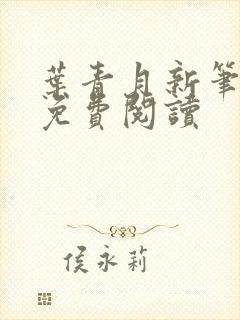 葉青月新筆
免費閱讀
侯永莉